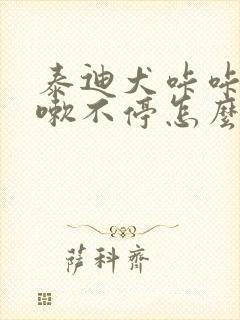 泰迪犬咔咔
嗽不停怎麼
薩科齊